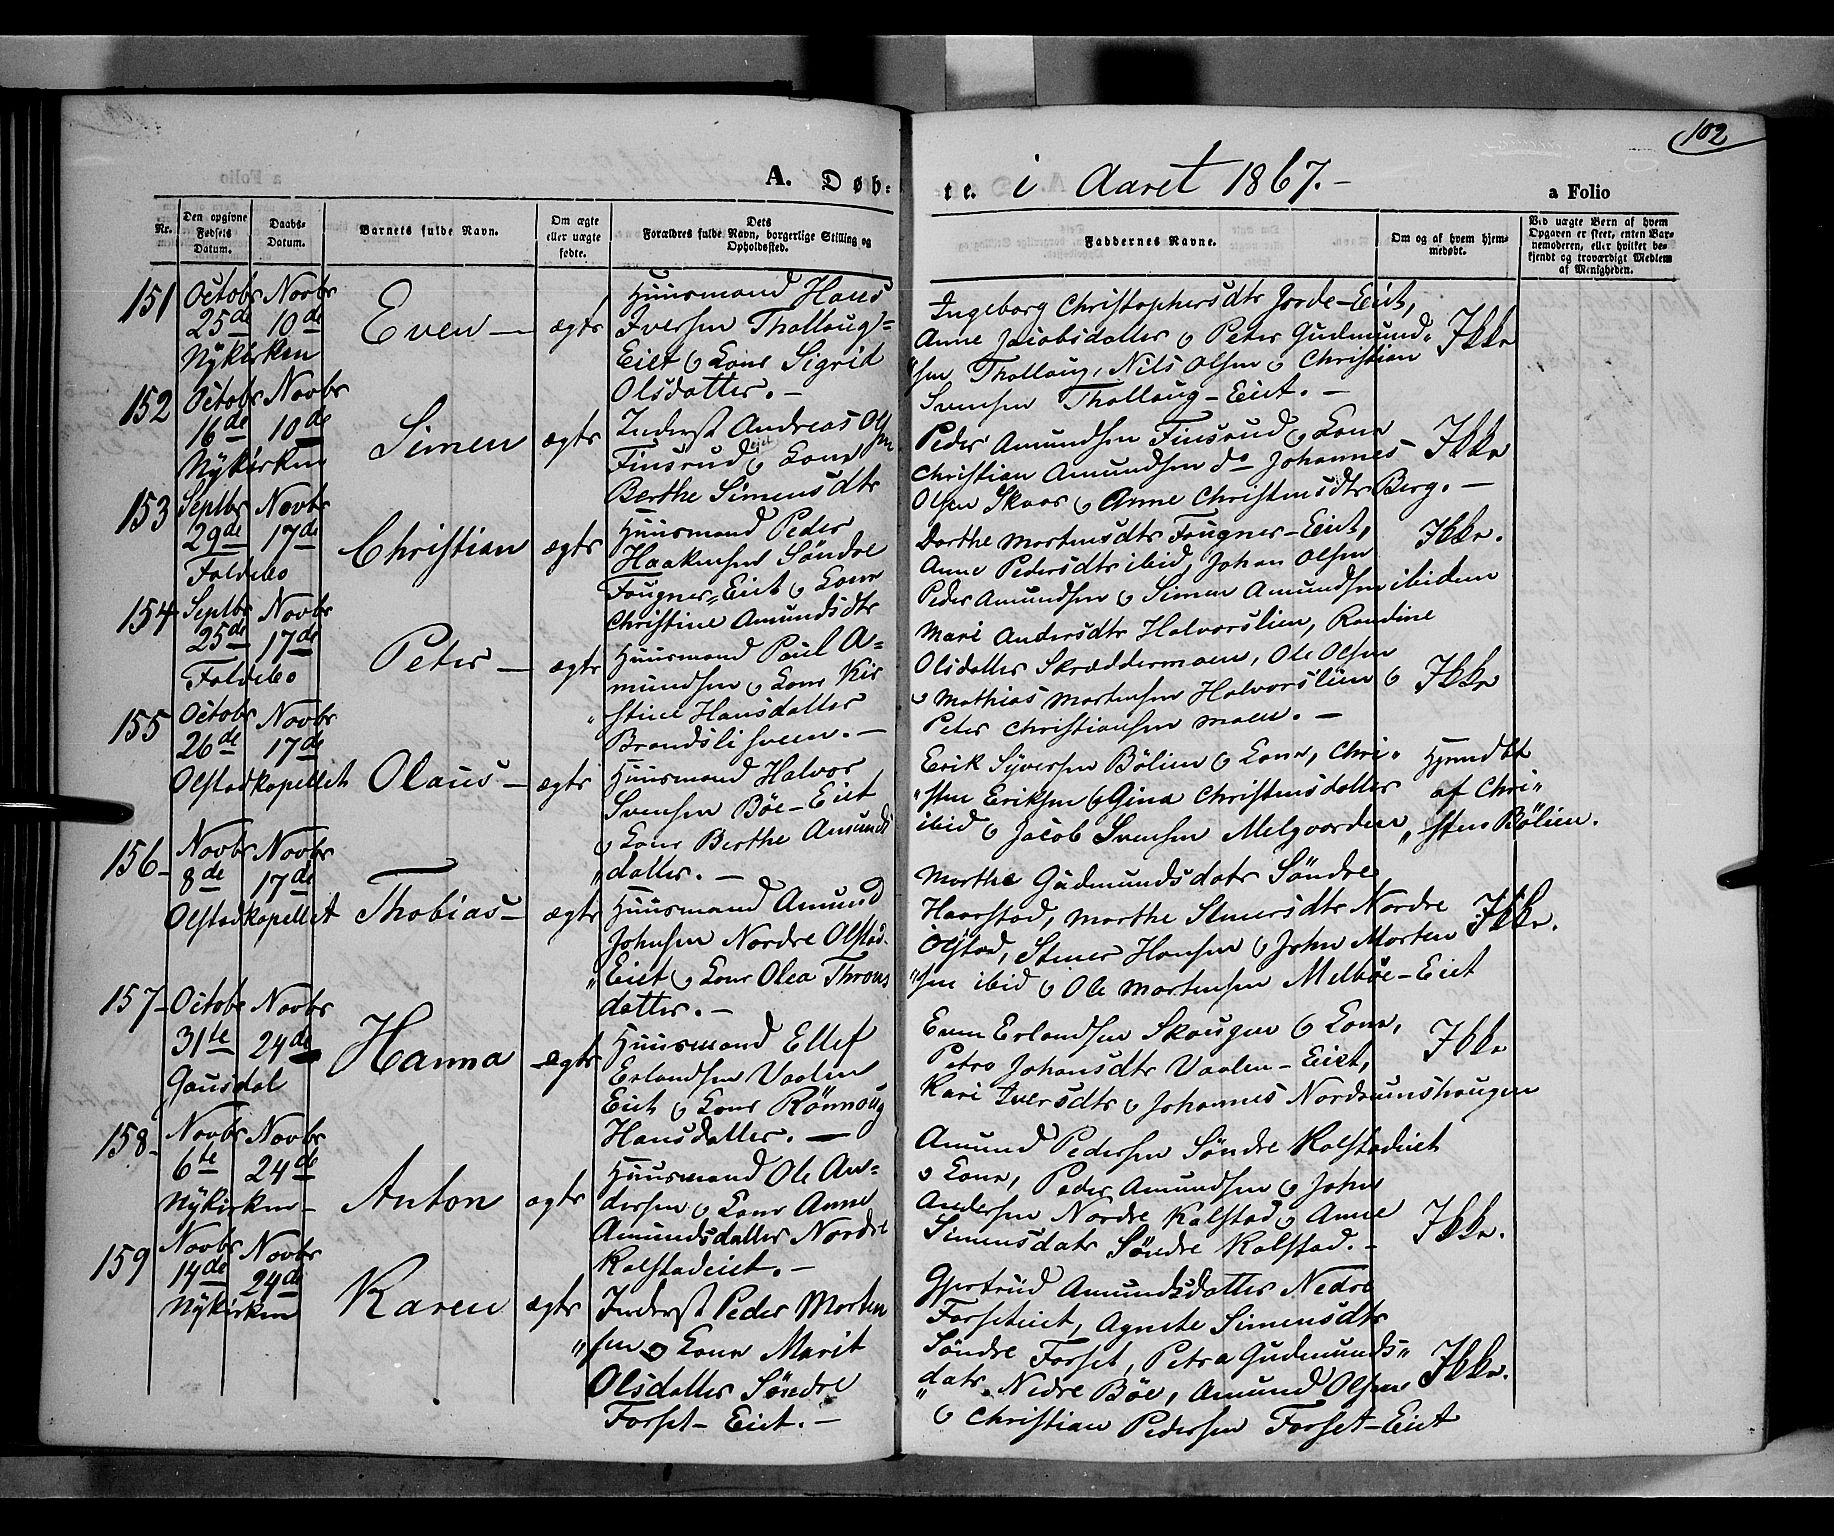 102
A. Døb-
te. i Aaret 1867.-
a Folio
Nr.
Den opgivne Fødsels Datum.
Daabs-Datum.
Barnets fulde Navn.
Om ægte eller uægte fødte.
Dets Forældres fulde Navn, borgerlige Stilling og Opholdssted.
Faddernes Navne.
Om og af hvem hjemmedøbt.
Ved uægte Børn af hvem Opgaven er skeet, enten Barnemoderen, eller hvilket bekjendt og troværdigt Medlem af Menigheden.
151 Octobr 25de Novbr 10de Nykirken
Even — ægte
Huusmand Hans
Iversen Thallaug-
Eiet & Kone Sigrid
Olsdatter. -
Ingeborg Christophersdtr Jorde-Eiet,
Anne Jacobsdatter & Peter Gudmund-
sen Thallaug, Nils Olsen & Christian
Svensen Thallaug-Eiet. -
Ikke
152 Octobr 16de Novbr 10de Nykirken
Simen ægte
Inderst Andreas Olsen
Finsrud eiet & Kone
Berthe Simensdtr
Peder Amundsen Finsrud & Kone
Christian Amundsen do Johannes
Olsen Skaar & Anne Christensdtr Berg. -
Ikke
153 Septbr 29de Novbr 17de Foldebo
Christian ægte
Huusmand Peder
Haakensen Söndre
Fougner-Eiet & Kone
Christine Amundsdtr
Dorthe Mortensdtr Fougner-Eiet,
Anne Pedersdtr ibid, Johan Olsen
Peder Amundsen & Simen Amundsen ibidem
Ikke.
154 Septbr 25de Novbr 17de Foldebo
Peter — ægte
Huusmand Paul A-
mundsen & Kone Kir
stine Hansdatter
Brandslisveen. -
Mari Andersdtr Halvorslien, Randine
Olsdatter Skræddermoen, Ole Olsen
& Mathias Mortensen Halvorslien &
Peter Christiansen Moen. -
Ikke
155 Octobr 26de Novbr 17de Olstadkapellet
Olaus — ægte
Huusmand Halvor
Svensen Böe-Eiet
& Kone Berthe Amunds
datter. -
Erik Syversen Bölien & Kone, Chri-
sten Eriksen & Gina Christensdatter
ibid & Jacob Svensen Melgaarden
Hjemdbt
af Chri-
sten Bölien.
156 Novbr 8de Novbr 17de Olstadkapellet
Thobias — ægte
Huusmand Amund
Johnsen Nordre Olstad-
Eiet & Kone Olea Throns
datter. -
Marthe Gudmundsdatr Söndre
Haarstad, Marthe Stenersdtr Nordre
Olstad, Stener Hansen & John Morten
sen ibid & Ole Mortensen Melböe-Eiet
Ikke.
157 Octobr 31te Novbr 24de Gausdal
Hanna ægte
Huusmand Ellef
Erlandsen Vaalen
Eiet & Kone Rönnoug
Hansdatter. -
Even Erlandsen Skougen & Kone,
Petro Johansdtr Vaalen-Eiet,
Kari Iversdtr & Johannes Nordrumshougen
Ikke
158 Novbr 6te Novbr 24de Nykirken
Anton ægte
Huusmand Ole An-
dersen & Kone Anne
Amundsdatter Nordre
Kalstadeiet. -
Amund Pedersen Söndre Kalstadeiet
& Kone, Peder Amundsen & John
Andersen Nordre Kalstad & Anne
Simensdatr Söndre Kalstad. -
Ikke.
159 Novbr 14de Novbr 24de Nykirken
Karen ægte
Inderst Peder Morten
sen & Kone Marit
Olsdatter Söndre
Forset-Eiet. -
Gjertrud Amundsdatter Nedre
Forseteiet, Agnete Simensdtr
Söndre Forset, Petra Gudmunds-
datr. Nedre Böe, Amund Olsen
& Christian Pedersen Forset-Eiet
Ikke.